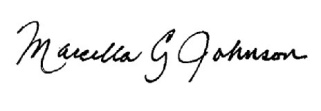 Marcella G Johnson